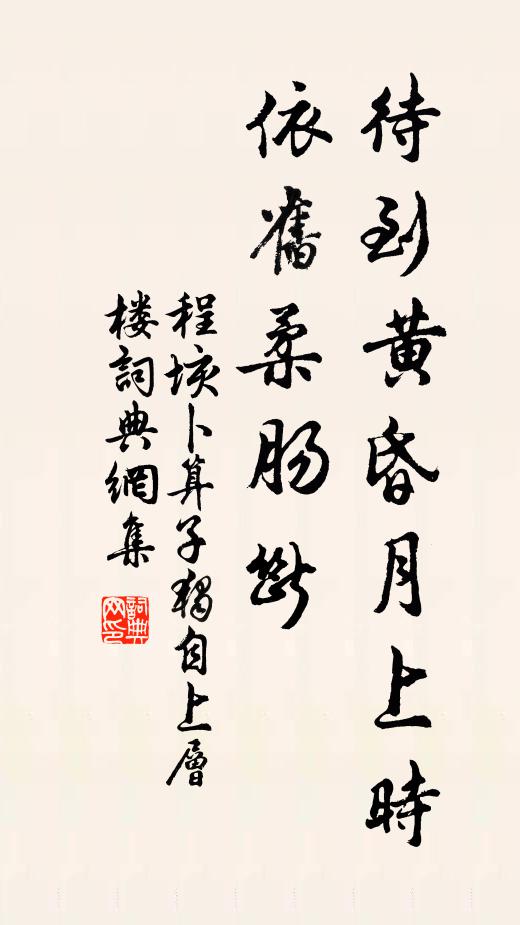 待到黄昏月上時
依舊柔肠斷
程垓卜算子獨自上層
楼詞典網集
詞典网印